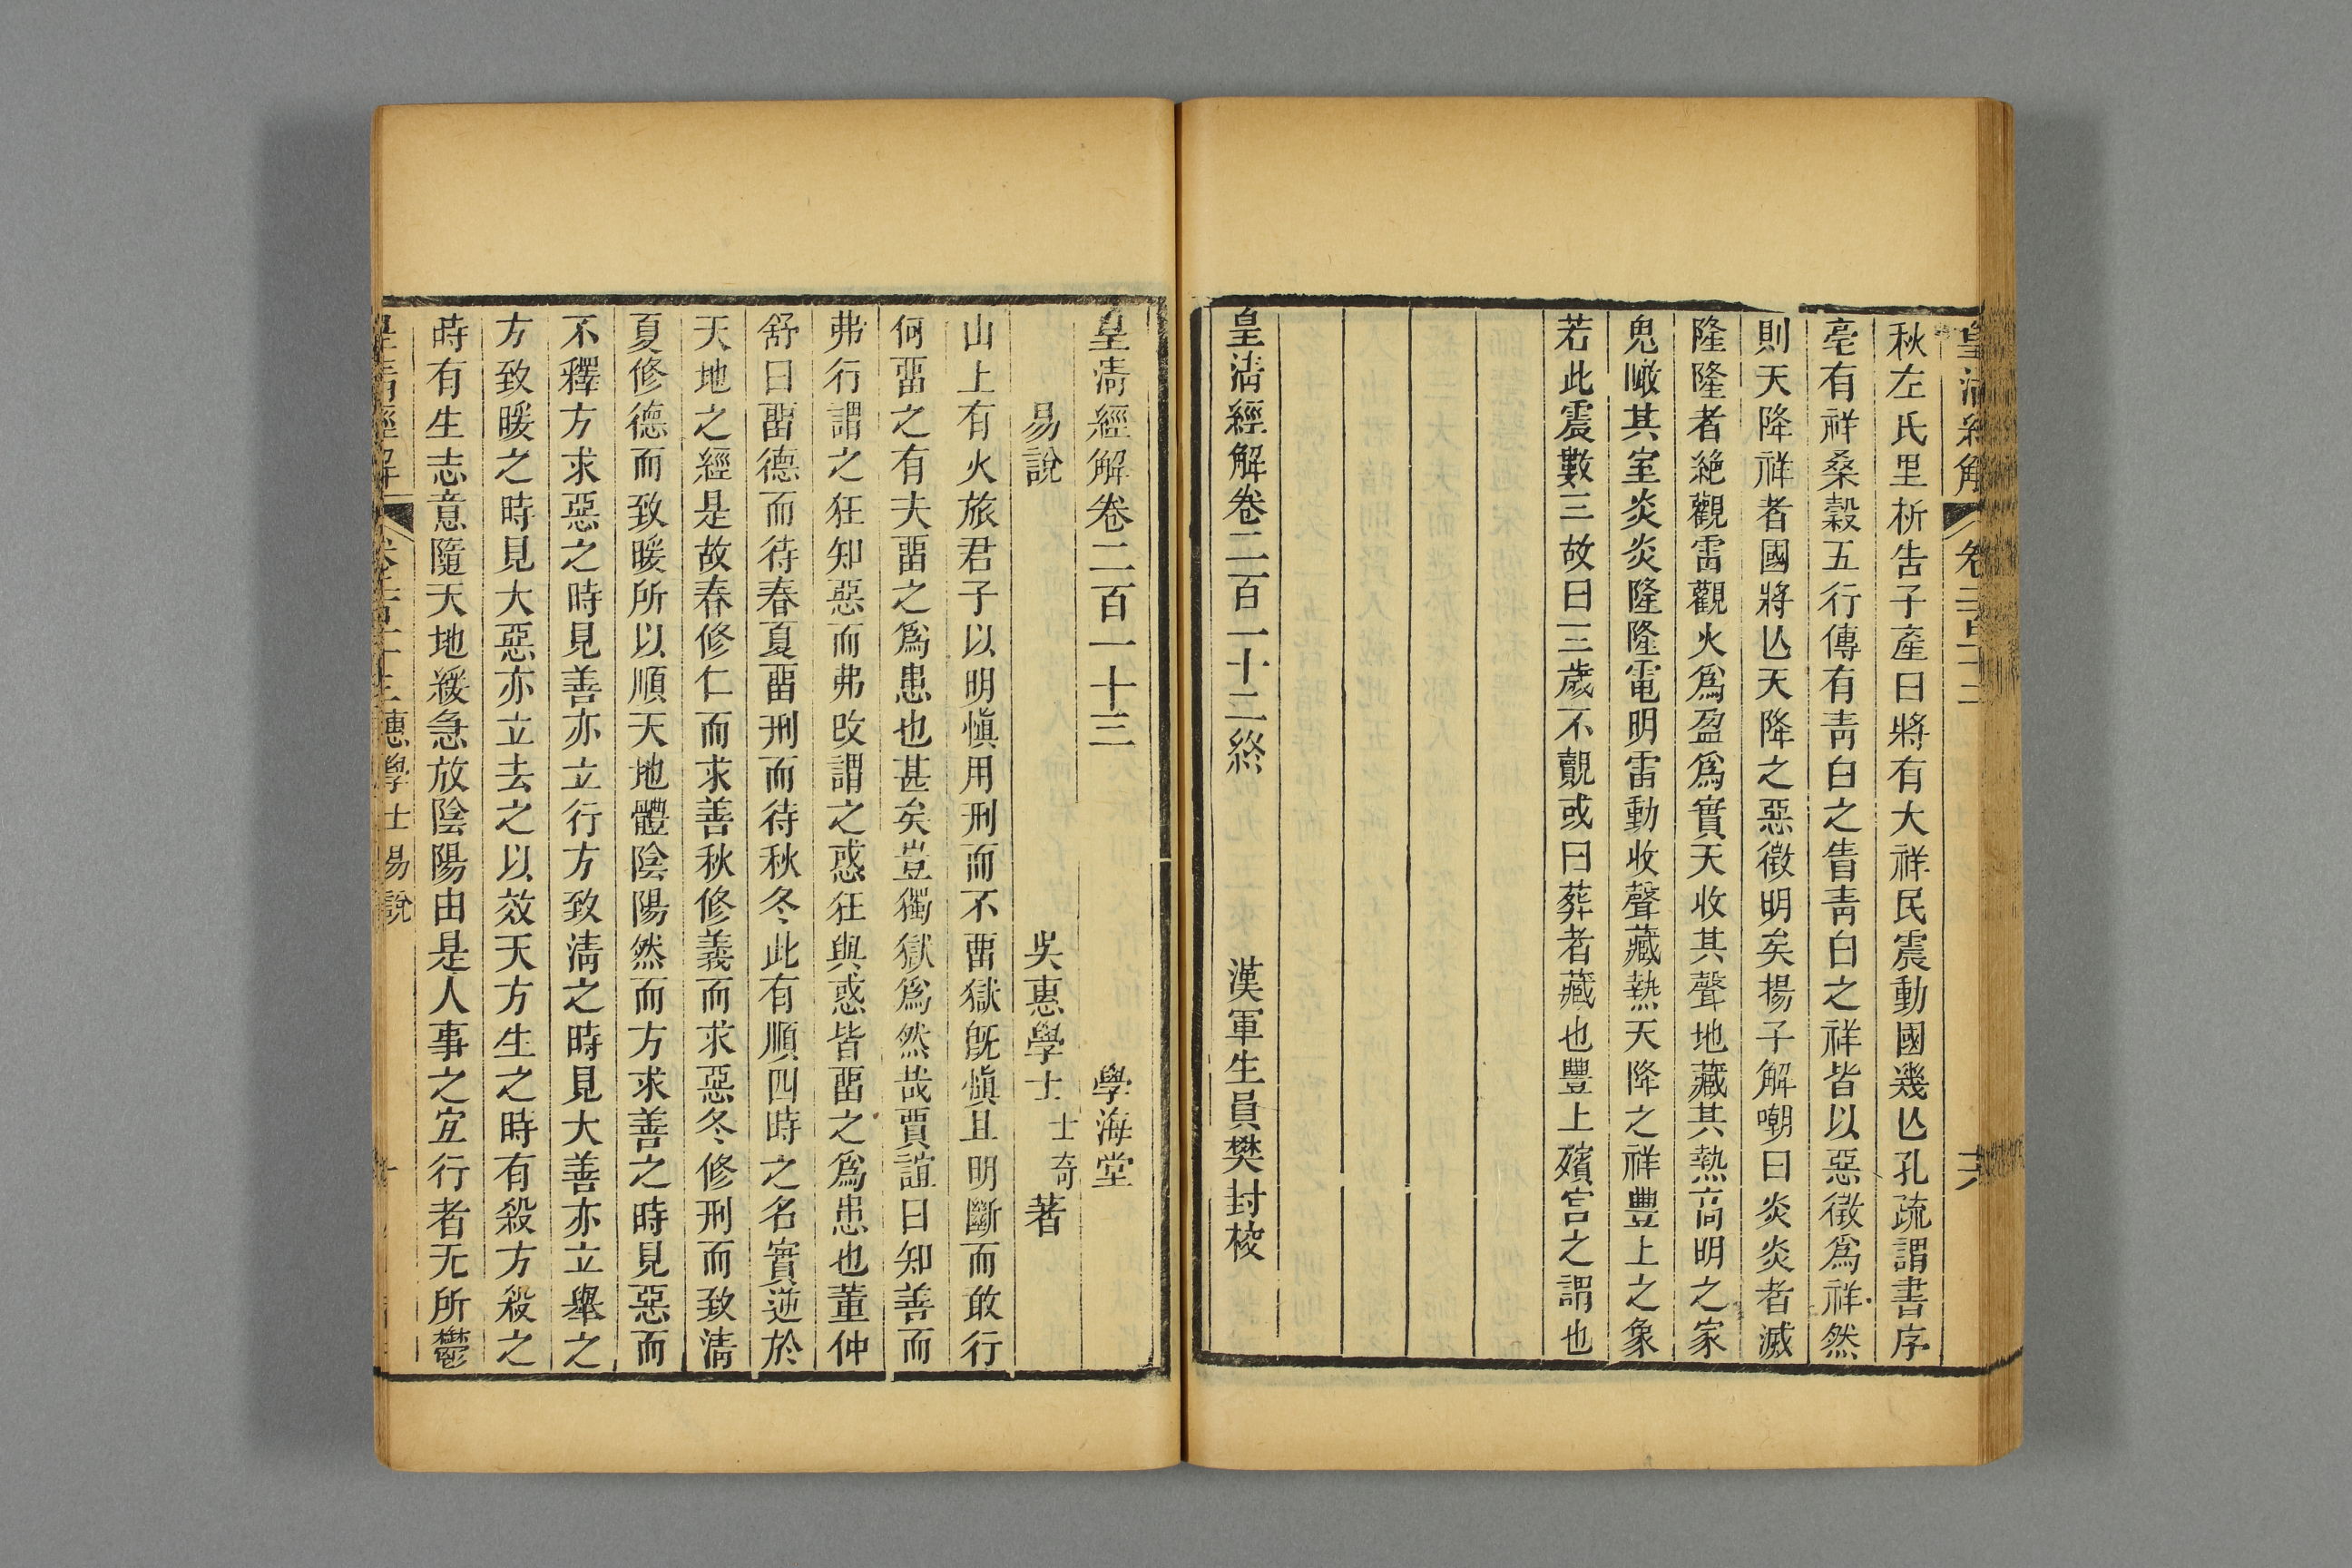 皇清經解 卷二百一十二 共
秋左氏里析告子產曰將有大祥民震動國幾亾孔疏謂書序
亳有祥桑榖五行傳有靑白之眚靑白之祥皆以惡徵爲祥然
則天降祥者國將亾天降之惡徵明矣揚子解嘲曰炎炎者滅
隆隆者絶觀雷觀火爲盈爲實天收其聲地藏其熱高明之家
鬼瞰其室炎炎隆隆電明雷動收聲藏熱天降之祥豐上之象
若此震數三故曰三歲不覿或曰葬者藏也豐上殯宮之謂也
皇清經解卷二百一十二終 漢軍生員樊封校
皇清經解卷二百一十三 學海堂
易說 吳惠學士士奇著
山上有火旅君子以明愼用刑而不畱獄旣愼且明斷而敢行
何畱之有夫畱之爲患也甚矣豈獨獄爲然哉賈誼曰知善而
弗行謂之狂知惡而弗改謂之惑狂與惑皆畱之爲患也董仲
舒曰畱德而待春夏畱刑而待秋冬此有順四時之名實逆於
天地之經是故春修仁而求善秋修義而求惡冬修刑而致淸
夏修德而致暖所以順天地體陰陽然而方求善之時見惡而
不釋方求惡之時見善亦立行方致淸之時見大善亦立舉之
方致暖之時見大惡亦立去之以效天方生之時有殺方殺之
時有生志意隨天地緩急放陰陽由是人事之宐行者无所鬱
皇清經解 卷二百一十三惠學士易說 一